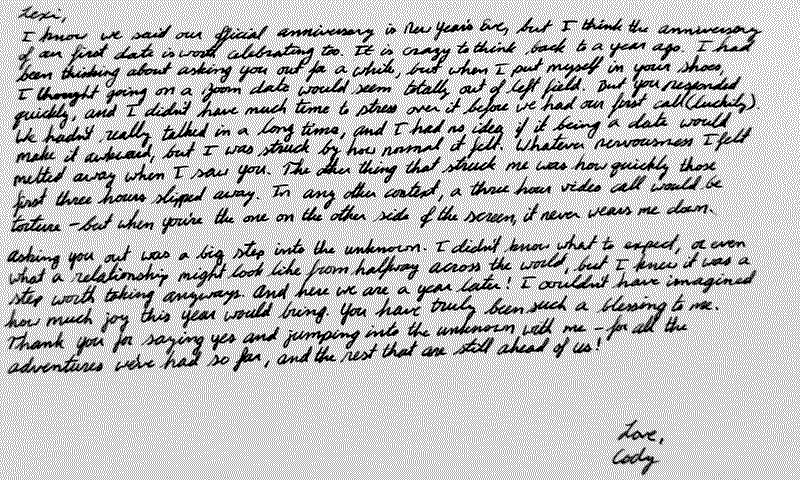 Lexi,
I know we said our official anniversary is New Year's Eve, but I think the anniversary
of our first date is worth celebrating too. It is crazy to think back to a year ago. I had
been thinking about asking you out for a while, but when I put myself in your shoes,
I thought going on a zoom date would seem totally out of left field. But you responded
quickly, and I didn't have much time to stress over it before we had our first call (luckily).
We hadn't really talked in a long time, and I had no idea if it being a date would
make it awkward, but I was struck by how normal it felt. Whatever nervousness I felt
melted away when I saw you. The other thing that struck me was how quickly those
first three hours slipped away. In any other context, a three hour video call would be
torture - but when you're the one on the other side of the screen, it never wears me down.
Asking you out was a big step into the unknown. I didn't know what to expect, or even
what a relationship might look like from halfway across the world, but I knew it was a
step worth taking anyways. And here we are a year later! I couldn't have imagined
how much joy this year would bring. You have truly been such a blessing to me.
Thank you for saying yes and jumping into the unknown with me - for all the
adventures we've had so far, and the rest that are still ahead of us!
Love,
Cody